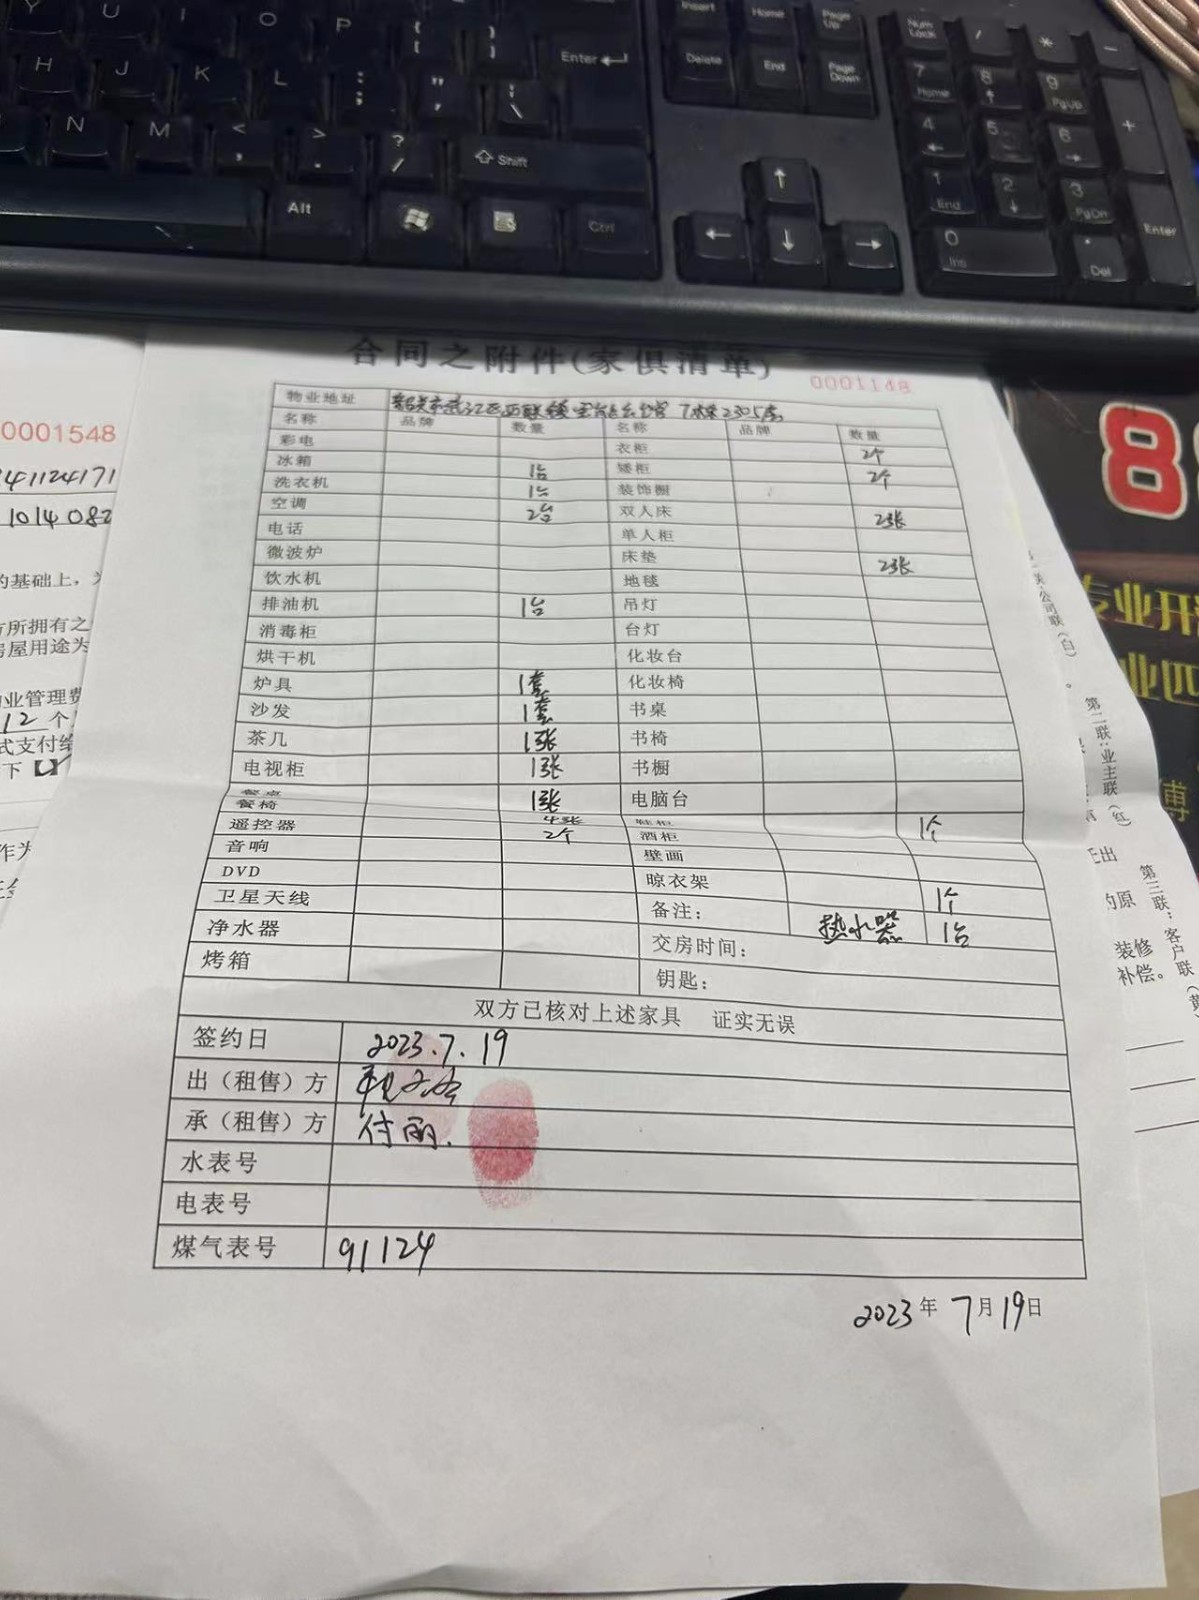 Y U I O P { [ } ] Enter Insert Home Page Up Num Lock / * -
H J K L : ; " ' | \ Delete End Page Down 7 Home 8 9 PgUp +
N M < , > . ? / Shift 4 5 6
Alt Ctrl 1 End 2 3 PgDn Enter
0 Ins . Del
合同之附件(家俱清单)
0001148
物业地址 7栋2305房
名称 品牌 数量 名称 品牌 数量
彩电 衣柜 2个
冰箱 1台 矮柜 2个
洗衣机 1台 装饰橱
空调 2台 双人床 2张
电话 单人柜
微波炉 床垫 2张
饮水机 地毯
排油机 1台 吊灯
消毒柜 台灯
烘干机 化妆台
炉具 1套 化妆椅
沙发 1套 书桌
茶几 1张 书椅
电视柜 1张 书橱
餐桌 1张 电脑台
餐椅 4张 鞋柜 1个
遥控器 2个 酒柜
音响 壁画
DVD 晾衣架 1个
卫星天线 备注: 热水器 1台
净水器 交房时间:
烤箱 钥匙:
双方已核对上述家具 证实无误
签约日 2023.7.19
出（租售）方
承（租售）方 付丽.
水表号
电表号
煤气表号 91124
2023年 7月19日
0001548
41124171
1014082
的基础上，
方所拥有之
房屋用途为
业管理费
12 个
式支付给
下【
作为
公司联（白）
第二联:业主联（红）
第三联:客户联（黄
的原
装修
补偿。
8
专业开
业匹
博